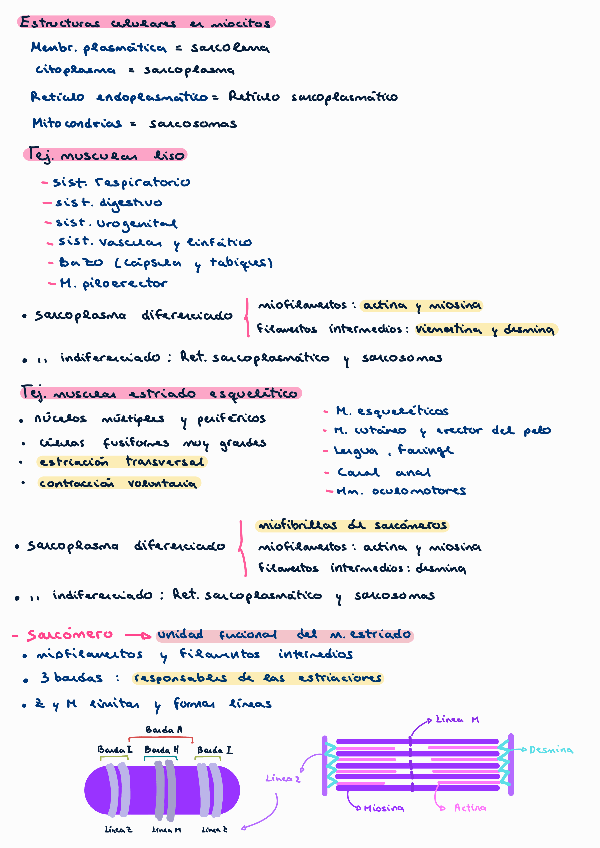 Estructuras celulares en miocitos
Membr. plasmática = sarcolema
citoplasma = sarcoplasma
Retículo endoplasmático = Retículo sarcoplasmático
Mitocondrias = sarcosomas
Tej. muscular liso
- sist. respiratorio
- sist. digestivo
- sist. urogenital
- sist. vascular y linfático
- Bazo (cápsula y tabiques)
- M. piloerector
• sarcoplasma diferenciado
miofilamentos: actina y miosina
filamentos intermedios: vimentina y desmina
• ,, indiferenciado: Ret. sarcoplasmático y sarcosomas
Tej. muscular estriado esquelético
• núcleos múltiples y periféricos
• células fusiformes muy grandes
• estriación transversal
• contracción voluntaria
- M. esqueléticos
- M. cutáneo y erector del pelo
- Lengua, faringe
- Canal anal
- Mm. oculomotores
• sarcoplasma diferenciado
miofibrillas de sarcómeros
miofilamentos: actina y miosina
filamentos intermedios: desmina
• ,, indiferenciado: Ret. sarcoplasmático y sarcosomas
- Sarcómero → unidad funcional del m. estriado
• miofilamentos y filamentos intermedios
• 3 bandas: responsables de las estriaciones
• Z y M limitar y formar líneas
Banda A
Banda I Banda H Banda I
Línea Z Línea M Línea Z
Línea Z
Línea M
Desmina
Miosina
Actina